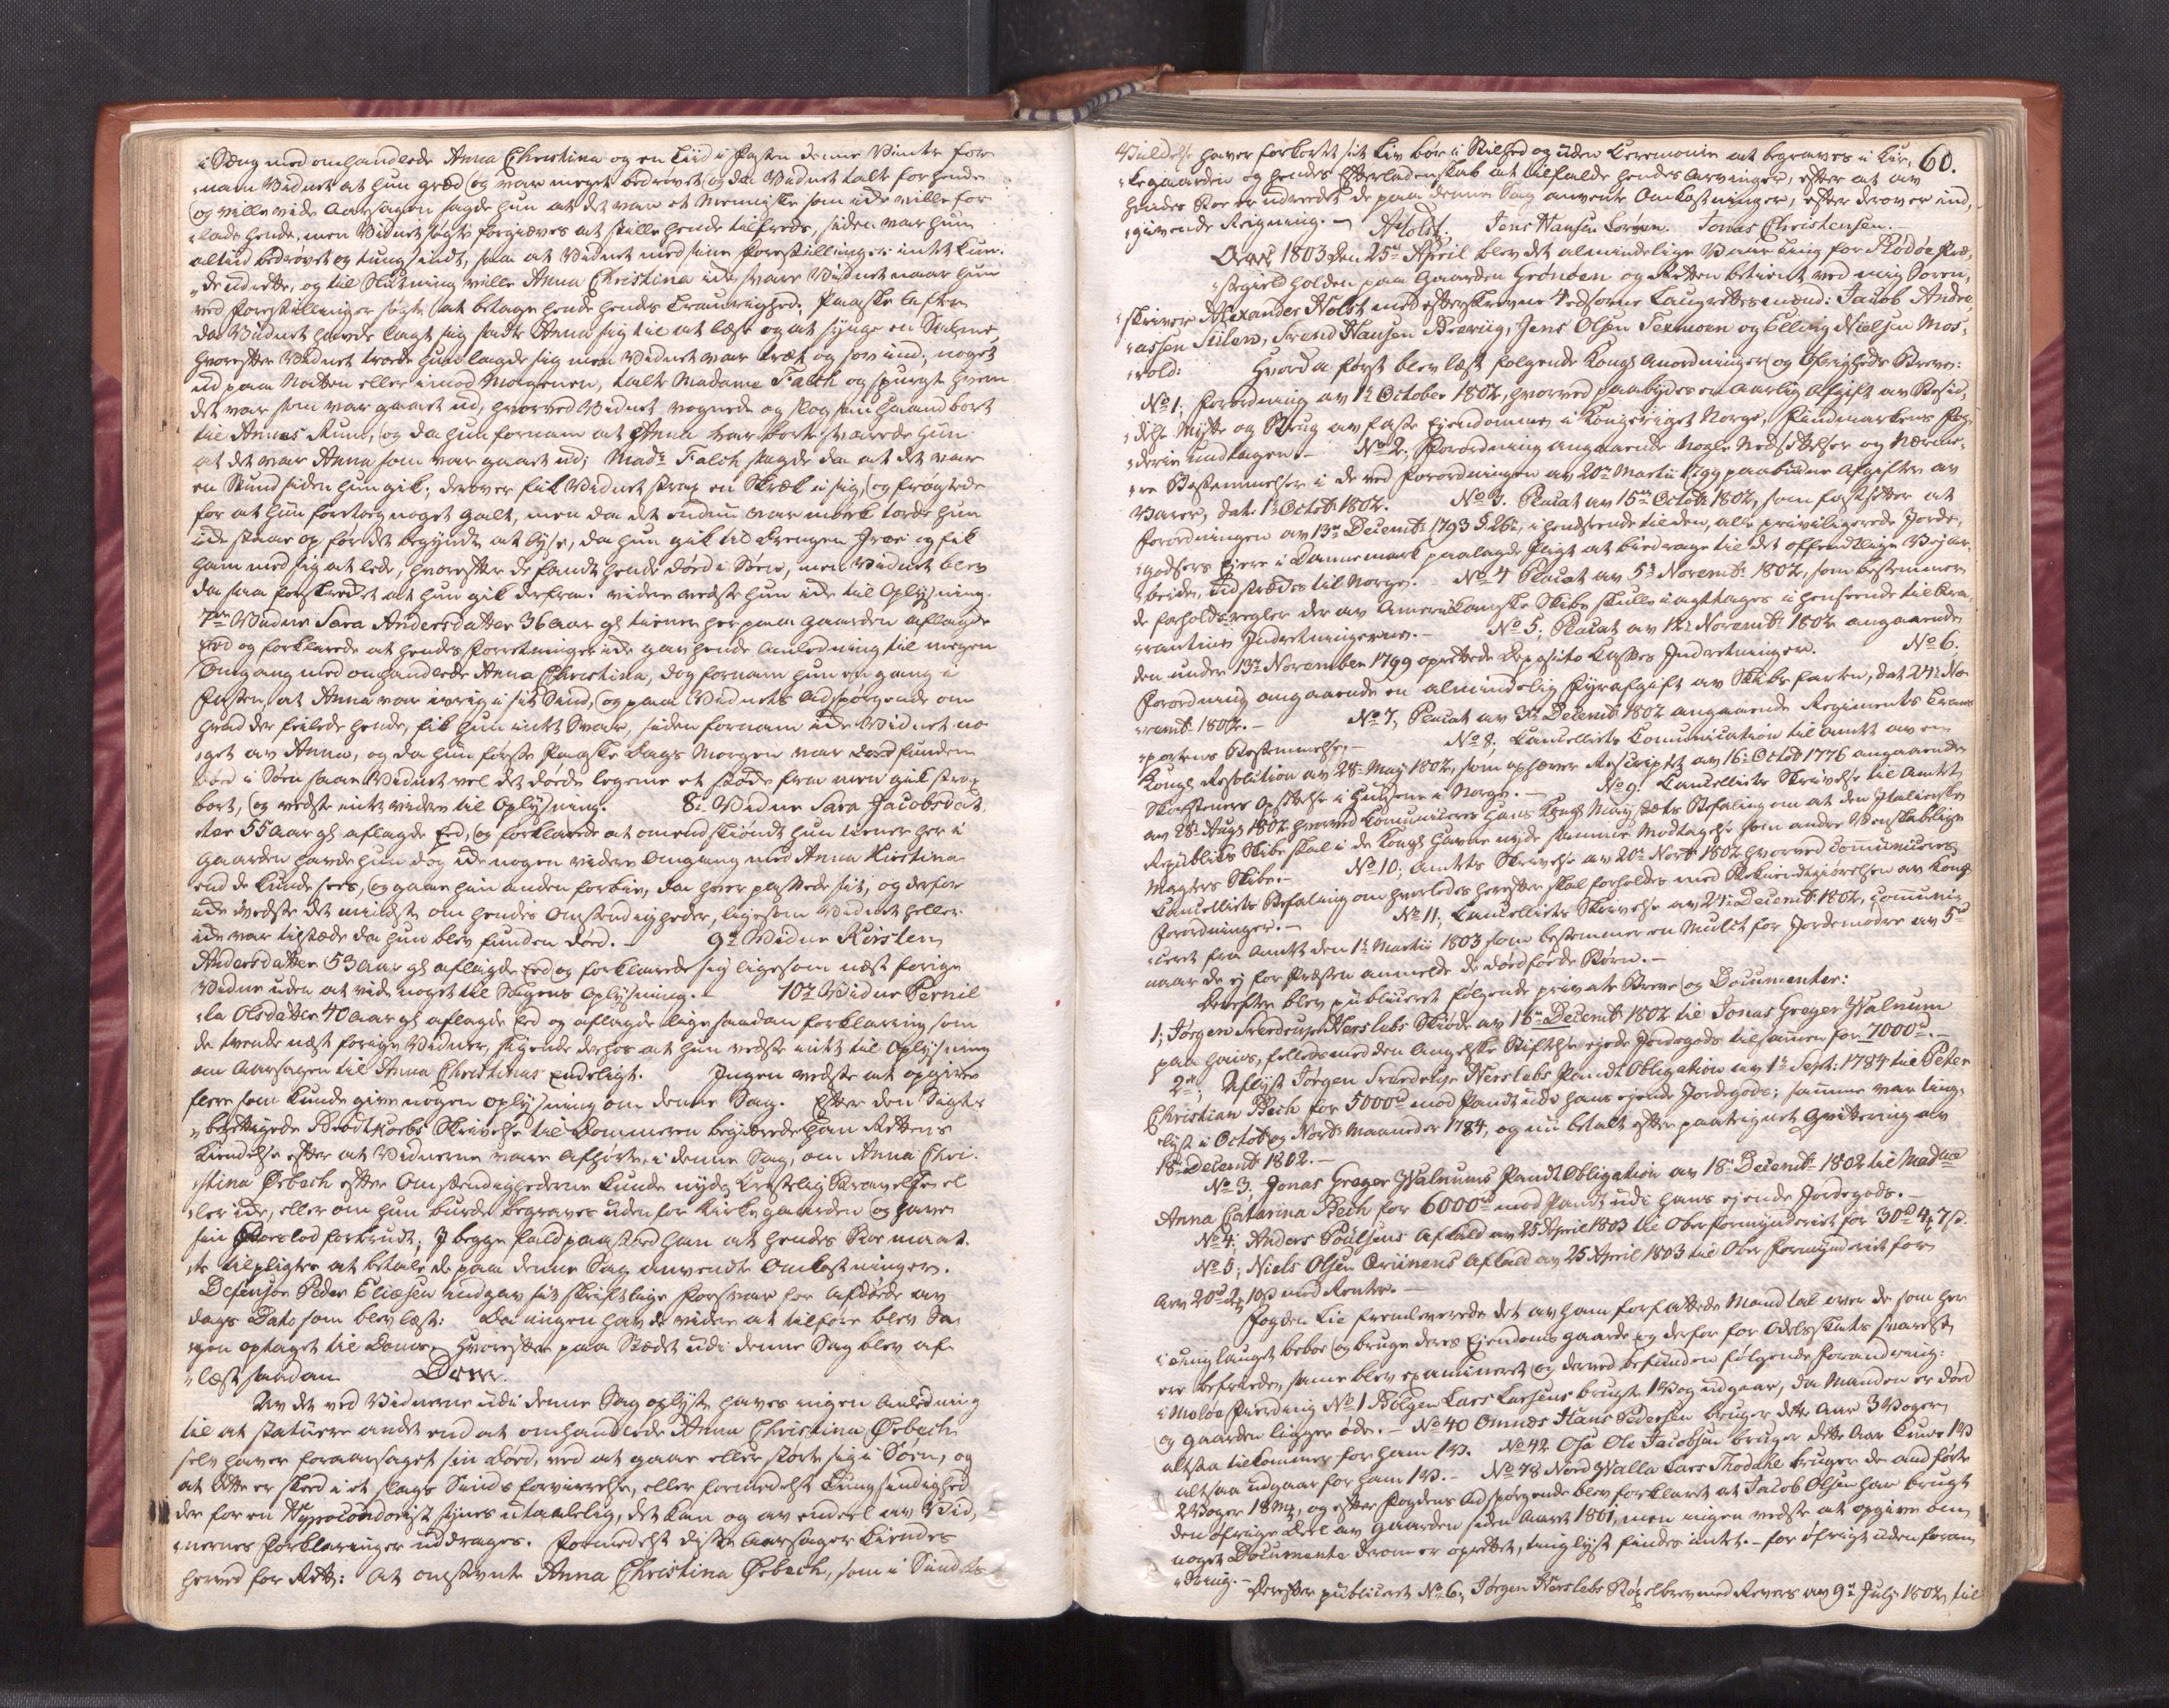 i Seng med omhandlede Anna Christina og en Tiid i Fasten denne Vinter for-
nam Vidnet at hun græd og var meget bedrøvet og da Vidnet talte for hende
og ville vide Aarsagen sagde hun at det var et Menniske som ide ville for-
lade hende, men Vidnet søgte forgiæves at stille hende tilfreds, siden var hun
altiid bedrøvet og tungsindt, saa at Vidnet med sine Forestillinger intet kun-
de udrette, og til Slutning ville Anna Christina ide svare Vidnet naar hun
ved Forestillinger søgte at betage hende hendes Traurighed. Paaske Aften
da Vidnet havde lagt sig satte Anna sig til at læse og at synge en Psalme,
hvorefter Vidnet troede hun lagde sig men Vidnet var træt og sov ind; noget
ud paa Natten eller imod Morgenen, talte Madame Falch og spurgte hvem
det var som var gaaet ud, hvorved Vidnet vognede og slog sin Haand bort
til Annas Rum, og da hun fornam at Anna var borte svarede hun
at det var Anna som var gaaet ud; Mad: Falch sagde da at det var
en Stund siden hun gik; derover fik Vidnet strax en Skræk i sig, og frøgtede
for at hun foretog noget galt, men da det endnu var mørkt torde hun
ide staae op før det begyndte at lyse, da hun gik til Drengen Iver og fik
ham med sig at lede, hvorefter de fandt hende død i Søen, men Vidnet blev
da saa forskrekket at hun gik derfra. videre vedste hun ide til Oplysning.
7de Vidne Sara Andersdatter 36 Aar gl tiener her paa Gaarden aflagde
Eed og forklarede at hendes Forretninger ide gav hende Anledning til megen
Omgang med omhandlede Anna Christina, dog fornam hun en gang i
Fasten at Anna var ivrig i sit Sind, og paa Vidnets Adspørgende om
hvad der feilede hende, fik hun intet Svar, siden fornam ide Vidnet no-
get av Anna, og da hun første Paaske Dags Morgen var død funden
død i Søen saae Vidnet vel det døde legeme et støde frem men gik strax
bort, og vedste intet videre til Oplysning. 8de Vidne Sara Jacobsdat-
ter 55 Aar gl aflagde Eed, og forklarede at omend skiøndt hun tiener her i
Gaarden havde hun dog ide nogen videre Omgang med Anna Kirstina
end de kunde sees, og gaae hin anden forbie, da hver passede sit, og derfor
ide vedste det mindste om hendes Omstendigheder, ligesom Vidnet heller
ide var tilstæde da hun blev funden død. — 9de Vidne Kirsten
Andersdatter 53 Aar gl aflagde Eed og forklarede sig ligesom næst forige
Vidne uden at vide noget til Sagens Oplysning. — 10de Vidne Pernil-
la Olsdatter 40 Aar gl aflagde Eed og aflagde lige saadan Forklaring som
de tvende næst forige Vidner, sigende derhos at hun vedste intet til Oplysning
om Aarsagen til Anna Christinas Endeligt. Ingen vedste at opgive
flere som kunde give nogen Oplysning om denne Sag. Efter den Sigt-
berettigede Brodtkorbs Skrivelse til Dommeren begiærede han Rettens
Kiendelse efter at Vidnerne vare afhørte, i denne Sag, om Anna Chri-
stina Ørbech efter Omstændighederne kunde nyde Christelig Begravelse el-
ler ide, eller om hun burde begraves uden for Kirkegaarden og have
sin Boeslod forbrudt; I begge fald paastoed han at hendes Boe maat-
te tilpligtes at betale de paa denne Sag anvendte Omkostninger.
Defensor Peder Eliæsen indgav sit skriftlige Forsvar for Afdøde av
Dags Dato som blev læst: Da ingen havde videre at tilføre blev Sa-
gen optaget til Doms, hvorefter paa Stædet udi denne Sag blev af-
læst saadan Dom.
Av det ved Vidnerne udi denne Sag oplyste haves ingen Anledning
til at statuere andet end at omhandlede Anna Christina Ørbech
selv haver foraarsaget sin Død, ved at gaae eller styrte sig i Søen, og
at dette er skeed i et slags Sinds forvirrelse, eller formedelst Tungsindighed
der for en Hypocondorist synes utaalelig, det kan og av endeel av Vid-
nernes Forklaringer uddrages. Formedelst disse Aarsager kiendes
herved for Ret: At omstevnte Anna Christina Ørbech, som i Sindets
60.
Vildelse haver forkortet sit Liv bør i Stilhed og uden Ceremonie at begraves i Kir-
kegaarden og hendes Efterladenskab at tilfalde hendes Arvinger, efter at av
hendes Boe er udreedet de paa denne Sag anvente Omkostninger, efter derover ind-
givende Reigning. — AHolst. Jens Hansen Lorven. Jonas Christensen. —
Aar 1803 den 25de April blev det almindelige Vaar Ting for Rødøe Præ-
stegield holden paa Gaarden Grønøen og Retten betient ved mig Soren-
skriver Alexander Holst med efterskrevne 4 edsorne Laugrettesmænd: Jacob Andre-
assen Silen, Svend Hansen Breviig, Jens Olsen Texmoen og Elling Nielsen Mos-
vold: Hvorda først blev læst følgende Kongl: Anordninger og Øvrigheds Breve:
No 1, Forordning av 1ste October 1802, hvorved paabydes en aarlig Afgift av Besid-
delse, Nytte og Brug av faste Ejendomme i Kongeriget Norge, Findmarkens Fog-
derie undtagen. — No 2, Forordning angaaende nogle Nedsættelser og Nærme-
re Bestemmelser i de ved Forordningen av 20de Martii 1799 paabudne Afgifter av
Varer, dat: 1ste Octob: 1802. No 3. Placat av 15de Octob: 1802, som fastsætter at
Forordningen av 13de Decemb: 1793 i henseende til den, alle priviligerede Jorde-
godsers Ejere i Dannemark paalagde Pligt at bidrage til det offendtlige Vejar-
beide, udstrædes til Norge. No 4 Placat av 5te Novemb: 1802, som bestemmer
de Forholds-regler der av Amerikanske Skibe skulle iagttages i henseende til Qva-
rantine Indretningerne. — No 5. Placat av 12te Novemb: 1802 angaaende
den under 13de November 1799 oprettede Deposito Casses Indretninger. No 6.
Forordning angaaende en almindelig Fyrafgift av Skibs farten, dat: 24de No-
vemb: 1802. — No 7, Placat av 3die Decemb: 1802 angaaende Regiments Trans-
portens Bestemmelse. — No 8. Cancelliets Comunication til Amtet av en
Kongl: Resolution av 28de May 1802, som ophæver Rescriptet av 16de Octob 1776 angaaende
Skorsteners Opsættelse i Husene i Norge. — No 9. Cancelliets Skrivelse til Amtet
av 28de Aug: 1802 hvorved comuniceres Hans Kongl: Mayestæts Befaling om at den Italienske
Republiks Skibe skal i de Kongl: Havne nyde samme Modtagelse som andre Venskabelige
Magters Skibe. — No 10, Amtets Skrivelse av 20de Novb: 1802 hvorved communiceres
Cancelliets Befaling om hvorledes herefter skal forholdes med Bekiendtgiørelsen av Kongl:
Forordninger. — No 11, Cancelliets Skrivelse av 24de Decemb: 1802, communi-
ceret fra Amtet den 1ste Martii 1803 som bestemmer en Mulct for Jordemødre av 5rd
naar de ej for Præsten anmelde de dødfødde Børn. —
Derefter blev publiceret følgende private Breve og Documenter:
1, Jørgen Sverdrup Herslebs Skiøde av 16de Decemb: 1802 til Jonas Greger Walnum
paa hans, fælleds med den Angelske Stiftelse ejede Jordegods tilsammen for 7000rd. —
2det, Aflyst Jørgen Sverdrup Herslebs Pandt Obligation av 1ste Sept: 1784 til Peter
Christian Bech for 5000rd mod Pandt udi hans ejende Jordegods; samme var ting-
lyst i Octob: og Novb: Maaneder 1784, og nu betalt efter paategnet Qvittering av
18de Decemb: 1802. —
No 3, Jonas Greger Walnums Pandt Obligation av 18de Decemb: 1802 til Madme
Anna Catarina Bech for 6000rd mod Pandt udi hans ejende Jordegods. —
No 4, Anders Poulsens Afkald av 25 April 1803 til Oberformynderiet for 30rd 4 7s.
No 5, Niels Olsen Qviinens Afkald av 25 April 1803 til Ober formynderiet for
Arv 20rd 2 10s med Renter. —
Fogden Lie fremleverede det av ham forfattede Mandtal over de som her
i Tinglauget beboe og bruge deres Ejendoms gaarde og derfor for Odelskatts svarelse
ere befriede, samme blev examineret og derved befunden følgende Forandring:
i Meløe Fierding No 1 Bolgen Lars Larsens brugte 1 Vog udgaar, da Manden er død
og Gaarden ligger øde. — No 40 Omnes Hans Pedersen bruger dette Aar 3 Voger
altsaa tilkommer for ham 1 V. No 42 Osa Ole Jacobsen bruger dette Aar kuns 1 V
altsaa udgaar for ham 1 V. — No 78 Nord Walla Lars Thodahl bruger de anførte
2 Voger 18 mk, og efter Fogdens Adspørgende blev forklaret at Jacob Olsen har brugt
den øfrige Deel av Gaarden siden Aaret 1801, men ingen vedste at opgive om
noget Document derom er oprettet, tinglyst findes intet. — for øfrigt uden foran-
dring. —
Derefter publiceret No 6, Jørgen Herslebs Bøxelbrev med Revers av 9de July 1802, til